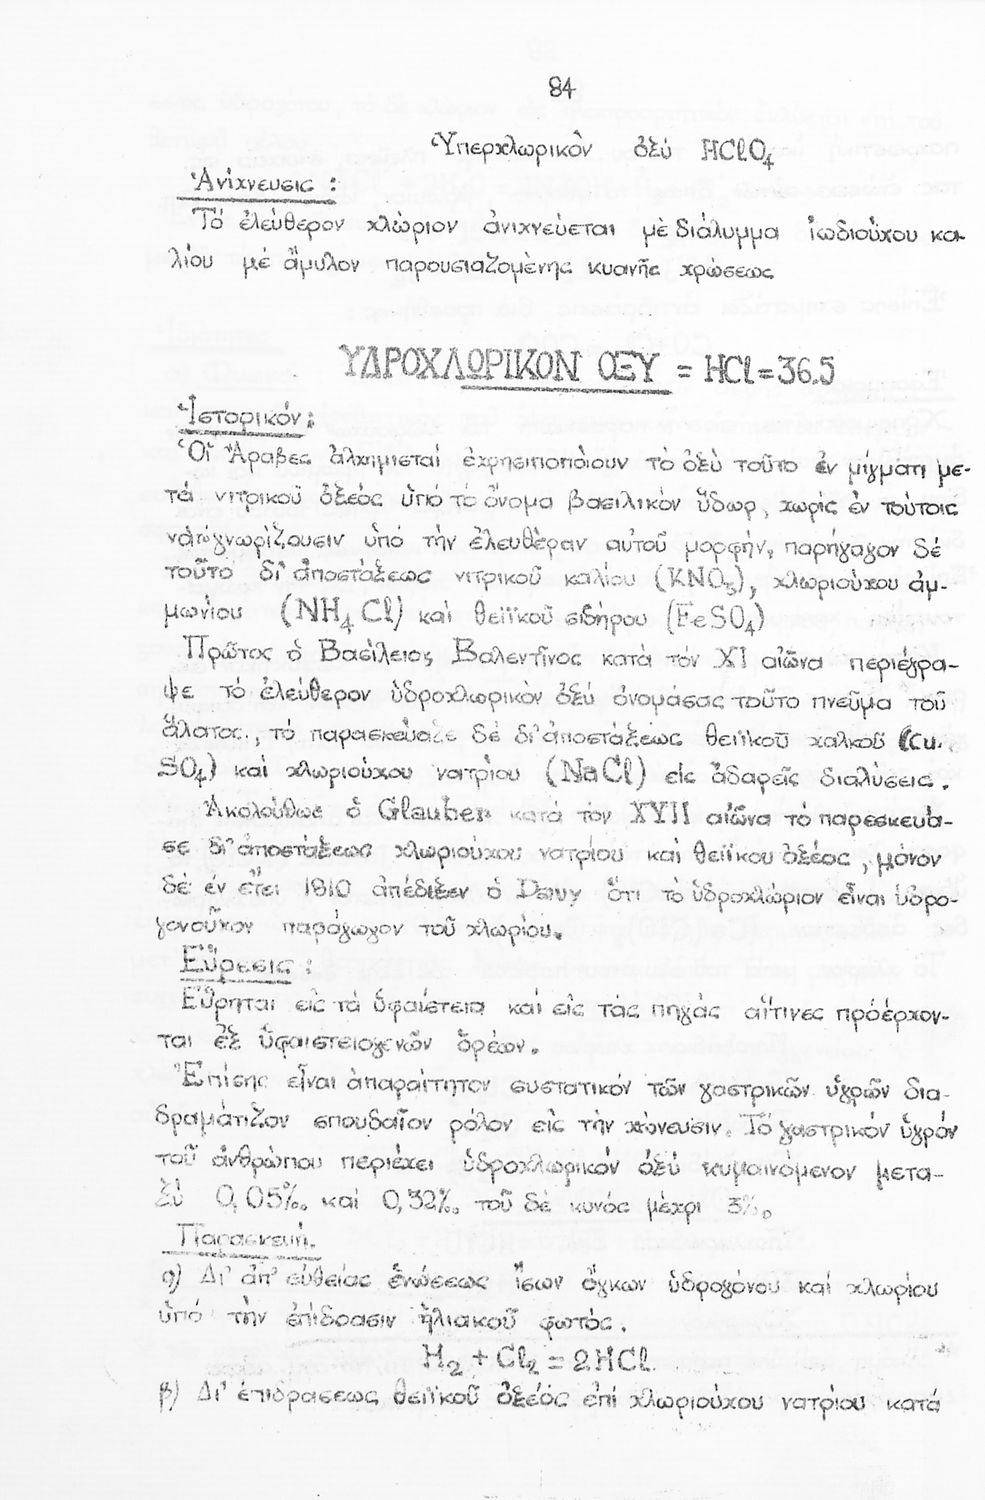 84
Ὑπερχλωρικὸν ὀξύ HClO4
Ἀνίχνευσις :
Τό ἐλεύθερον χλώριον ἀνιχνεύεται μὲ διάλυμμα ἰωδιούχου κα-
λίου μέ ἄμυλον παρουσιαζομένης κυανῆς χρώσεως
ΥΔΡΟΧΛΩΡΙΚΟΝ ΟΞΥ = HCl = 36.5
Ἱστορικόν :
Οἱ Ἄραβες ἀλχημισταί ἐχρησιποποίουν τὸ ὀξύ τοῦτο ἐν μίγματι με-
τά νιτρικοῦ ὀξέος ὑπό τό ὄνομα βασιλικὸν ὕδωρ, χωρίς ἐν τούτοις
νά γνωρίζουσιν ὑπό τήν ἐλευθέραν αὐτοῦ μορφήν, παρήγαγον δέ
τοῦτο δι' ἀποστάξεως νιτρικοῦ καλίου (KNO3), χλωριούχου ἀμ-
μωνίου (NH4 Cl) καί θειϊκοῦ σιδήρου (FeSO4)
Πρῶτος ὁ Βασίλειος Βαλεντῖνος κατά τόν XI αἰῶνα περιέγρα-
ψε τό ἐλεύθερον ὑδροχλωρικὸν ὀξύ ὀνομάσας τοῦτο πνεῦμα τοῦ
ἅλατος, τό παρασκεύαζε δέ δι' ἀποστάξεως θειϊκοῦ χαλκοῦ (Cu.
SO4) καί χλωριούχου νατρίου (NaCl) εἰς ἀδαρεῖς διαλύσεις.
Ἀκολούθως ὁ Glauber κατά τόν XVII αἰῶνα τό παρεσκεύα-
σε δι' ἀποστάξεως χλωριούχου νατρίου καί θειϊκου ὀξέος, μόνον
δέ ἐν ἔτει 1810 ἀπέδιξεν ὁ Davy ὅτι τό ὑδροχλώριον εἶναι ὑδρο-
γονοῦχον παράγωγον τοῦ χλωρίου.
Εὕρεσις :
Εὕρηται εἰς τά ὑφαίστεια καί εἰς τάς πηγάς αἵτινες προέρχον-
ται ἐξ ὑφαιστειογενῶν ὀρέων.
Ἐπίσης εἶναι ἀπαραίτητον συστατικόν τῶν γαστρικῶν ὑγρῶν δια-
δραμάτιζον σπουδαῖον ρόλον εἰς τήν χώνευσιν. Τό γαστρικόν ὑγρόν
τοῦ ἀνθρώπου περιέχει ὑδροχλωρικόν ὀξύ κυμαινόμενον μετα-
ξύ 0,05‰ καί 0,32‰ τοῦ δέ κυνός μέχρι 3‰
Παρασκευή.
α) Δι' ἀπ' εὐθείας ἑνώσεως ἴσων ὄγκων ὑδρογόνου καί χλωρίου
ὑπό τήν ἐπίδρασιν ἡλιακοῦ φωτός.
H2 + Cl2 = 2HCl
β) Δι' ἐπιδράσεως θειϊκοῦ ὀξέος ἐπί χλωριούχου νατρίου κατά